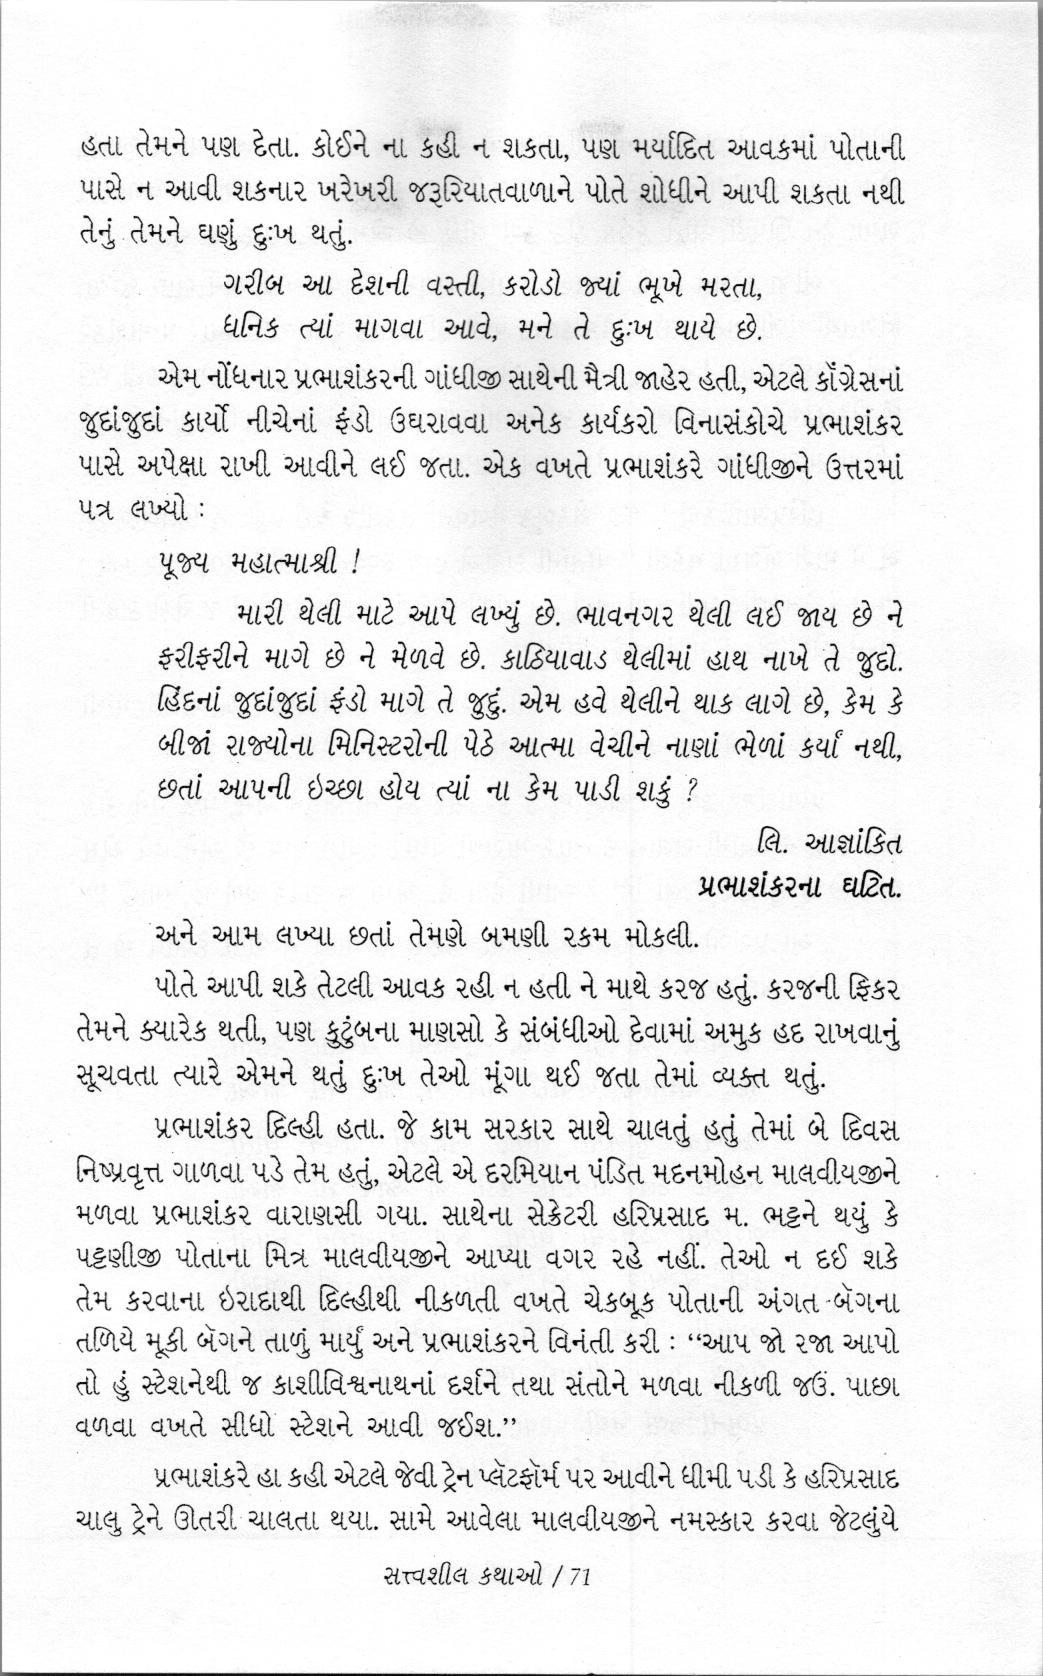 હતા તેમને પણ દેતા. કોઈને ના કહી ન શકતા, પણ મર્યાદિત આવકમાં પોતાની
પાસે ન આવી શકનાર ખરેખરી જરૂરિયાતવાળાને પોતે શોધીને આપી શકતા નથી
તેનું તેમને ઘણું દુઃખ થતું.
ગરીબ આ દેશની વસ્તી, કરોડો જ્યાં ભૂખે મરતા,
ધનિક ત્યાં માગવા આવે, મને તે દુઃખ થાયે છે.
એમ નોંધનાર પ્રભાશંકરની ગાંધીજી સાથેની મૈત્રી જાહેર હતી, એટલે કૉંગ્રેસનાં
જુદાંજુદાં કાર્યો નીચેનાં ફંડો ઉઘરાવવા અનેક કાર્યકરો વિનાસંકોચે પ્રભાશંકર
પાસે અપેક્ષા રાખી આવીને લઈ જતા. એક વખતે પ્રભાશંકરે ગાંધીજીને ઉત્તરમાં
પત્ર લખ્યો :
પૂજ્ય મહાત્માશ્રી !
મારી થેલી માટે આપે લખ્યું છે. ભાવનગર થેલી લઈ જાય છે ને
ફરીફરીને માગે છે ને મેળવે છે. કાઠિયાવાડ થેલીમાં હાથ નાખે તે જુદો.
હિંદનાં જુદાંજુદાં ફંડો માગે તે જુદું. એમ હવે થેલીને થાક લાગે છે, કેમ કે
બીજાં રાજ્યોના મિનિસ્ટરોની પેઠે આત્મા વેચીને નાણાં ભેળાં કર્યાં નથી,
છતાં આપની ઇચ્છા હોય ત્યાં ના કેમ પાડી શકું ?
લિ. આજ્ઞાંકિત
પ્રભાશંકરના ઘટિત.
અને આમ લખ્યા છતાં તેમણે બમણી રકમ મોકલી.
પોતે આપી શકે તેટલી આવક રહી ન હતી ને માથે કરજ હતું. કરજની ફિકર
તેમને ક્યારેક થતી, પણ કુટુંબના માણસો કે સંબંધીઓ દેવામાં અમુક હદ રાખવાનું
સૂચવતા ત્યારે એમને થતું દુઃખ તેઓ મૂંગા થઈ જતા તેમાં વ્યક્ત થતું.
પ્રભાશંકર દિલ્હી હતા. જે કામ સરકાર સાથે ચાલતું હતું તેમાં બે દિવસ
નિષ્પ્રવૃત્ત ગાળવા પડે તેમ હતું, એટલે એ દરમિયાન પંડિત મદનમોહન માલવીયજીને
મળવા પ્રભાશંકર વારાણસી ગયા. સાથેના સેક્રેટરી હરિપ્રસાદ મ. ભટ્ટને થયું કે
પટ્ટણીજી પોતાના મિત્ર માલવીયજીને આપ્યા વગર રહે નહીં. તેઓ ન દઈ શકે
તેમ કરવાના ઇરાદાથી દિલ્હીથી નીકળતી વખતે ચેકબૂક પોતાની અંગત બૅગના
તળિયે મૂકી બૅગને તાળું માર્યું અને પ્રભાશંકરને વિનંતી કરી : “આપ જો રજા આપો
તો હું સ્ટેશનેથી જ કાશીવિશ્વનાથનાં દર્શને તથા સંતોને મળવા નીકળી જઉં. પાછા
વળવા વખતે સીધો સ્ટેશને આવી જઈશ.”
પ્રભાશંકરે હા કહી એટલે જેવી ટ્રેન પ્લૅટફૉર્મ પર આવીને ધીમી પડી કે હરિપ્રસાદ
ચાલુ ટ્રેને ઊતરી ચાલતા થયા. સામે આવેલા માલવીયજીને નમસ્કાર કરવા જેટલુંયે
સત્ત્વશીલ કથાઓ / 71